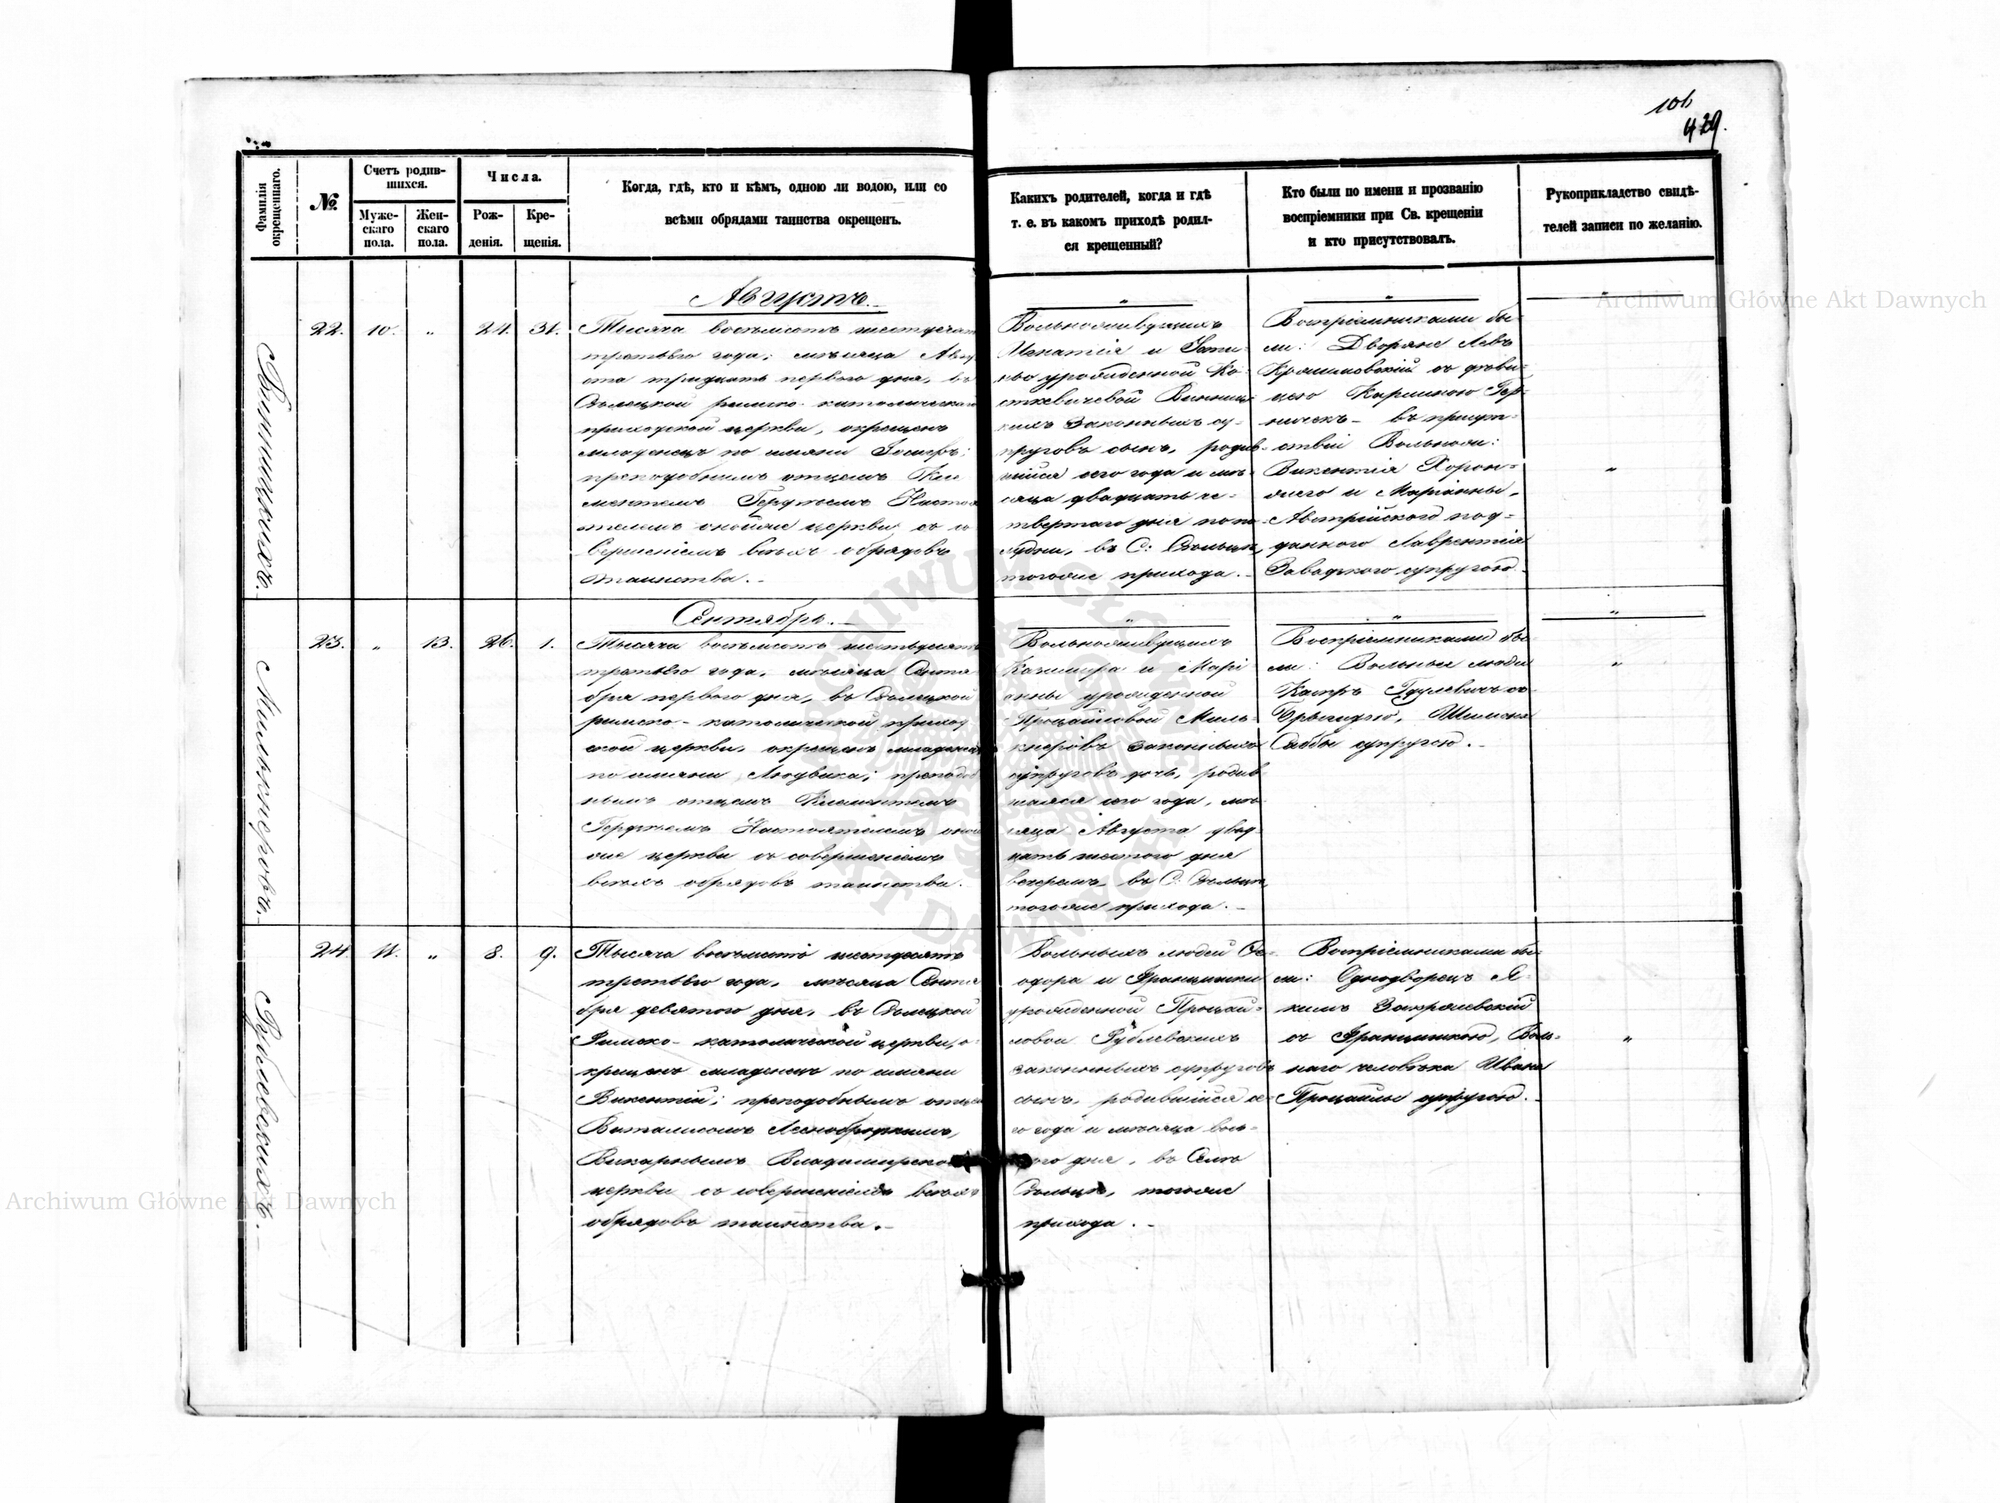 106
429.
Фамилія окрещеннаго.
№.
Счетъ родив-
шихся.
Муже-
скаго
пола.
Жен-
скаго
пола.
Числа.
Рож-
денія.
Кре-
щенія.
Когда, гдѣ, кто и кѣмъ, одною ли водою, или со
всѣми обрядами таинства окрещенъ.
Какихъ родителей, когда и гдѣ
т. е. въ какомъ приходѣ родил-
ся крещенный?
Кто были по имени и прозванію
воспріемники при Св. крещеніи
и кто присутствовалъ.
Рукоприкладство свидѣ-
телей записи по желанію.
Винницкихъ.
22. 10. „ 24. 31.
Августъ.
Тысяча восемьсотъ шестьдесятъ
третьяго года, мѣсяца Авгу
ста тридцать перваго дня, въ
римско-католической
приходской церкви, окрещенъ
младенецъ по имяни Іосифъ;
преподобнымъ отцемъ Кли
ментемъ Настоя
телемъ онойже церкви, со со
вершеніемъ всѣхъ обрядовъ
таинства.
Вольноживущихъ
Игнатія и
урожденной Ко-
сткевичевой Винниц
кихъ законныхъ су-
пруговъ сынъ, родив-
шійся сего года и мѣ-
сяца двадцать че-
твертаго дня по по
лудни, въ С.
тогоже прихода.
Воспріемниками бы-
ли: Дворяне Левъ
съ дѣви-
цею
въ присут-
ствіи Вольнож:
Викентія Хорон-
жего и Маріанны,
Австрійскаго под-
даннаго Лаврентія
Завадскаго супругою.
Милькнеровъ.
23. „ 13. 26. 1.
Сентябрь.
Тысяча восемьсотъ шестьдесятъ
третьяго года, мѣсяца Сентя
бря перваго дня, въ
римско-католической приход
ской церкви, окрещенъ младенецъ
по имяни Людвика; преподоб
нымъ отцемъ Климентемъ
Настоятелемъ оной
же церкви съ совершеніемъ
всѣхъ обрядовъ таинства.
Вольноживущихъ
Казимира и Марі
анны урожденной
Процайловой Миль-
кнеровъ законныхъ
супруговъ дочь, родив
шаяся сего года, мѣ-
сяца Августа двад-
цать шестого дня
вечеромъ, въ С.
тогоже прихода.
Воспріемниками бы-
ли: Вольные люди
съ
Брыгидою,
Саббы супругою.
Рублевскихъ.
24. 11. „ 8. 9.
Тысяча восемьсотъ шестьдесятъ
третьяго года, мѣсяца Сентя
бря девятого дня, въ
Римско-католической церкви, о-
крещенъ младенецъ по имяни
Викентій; преподобнымъ отцемъ
Викарнымъ Владимирской
церкви съ совершеніемъ всѣхъ
обрядовъ таинства.
Вольныхъ людей Ѳе-
одора и Францишки
урожденной Процай-
ловой Рублевскихъ
законныхъ супруговъ
сынъ, родившійся се-
го года и мѣсяца вось-
мого дня, въ Селѣ
тогоже
прихода.
Воспріемниками бы-
ли: Однодворецъ Я-
кимъ Закржевскій
съ Францишкою, Воль-
наго человѣка Ивана
Процайлы супругою.
Archiwum Główne Akt Dawnych
Archiwum Główne Akt Dawnych